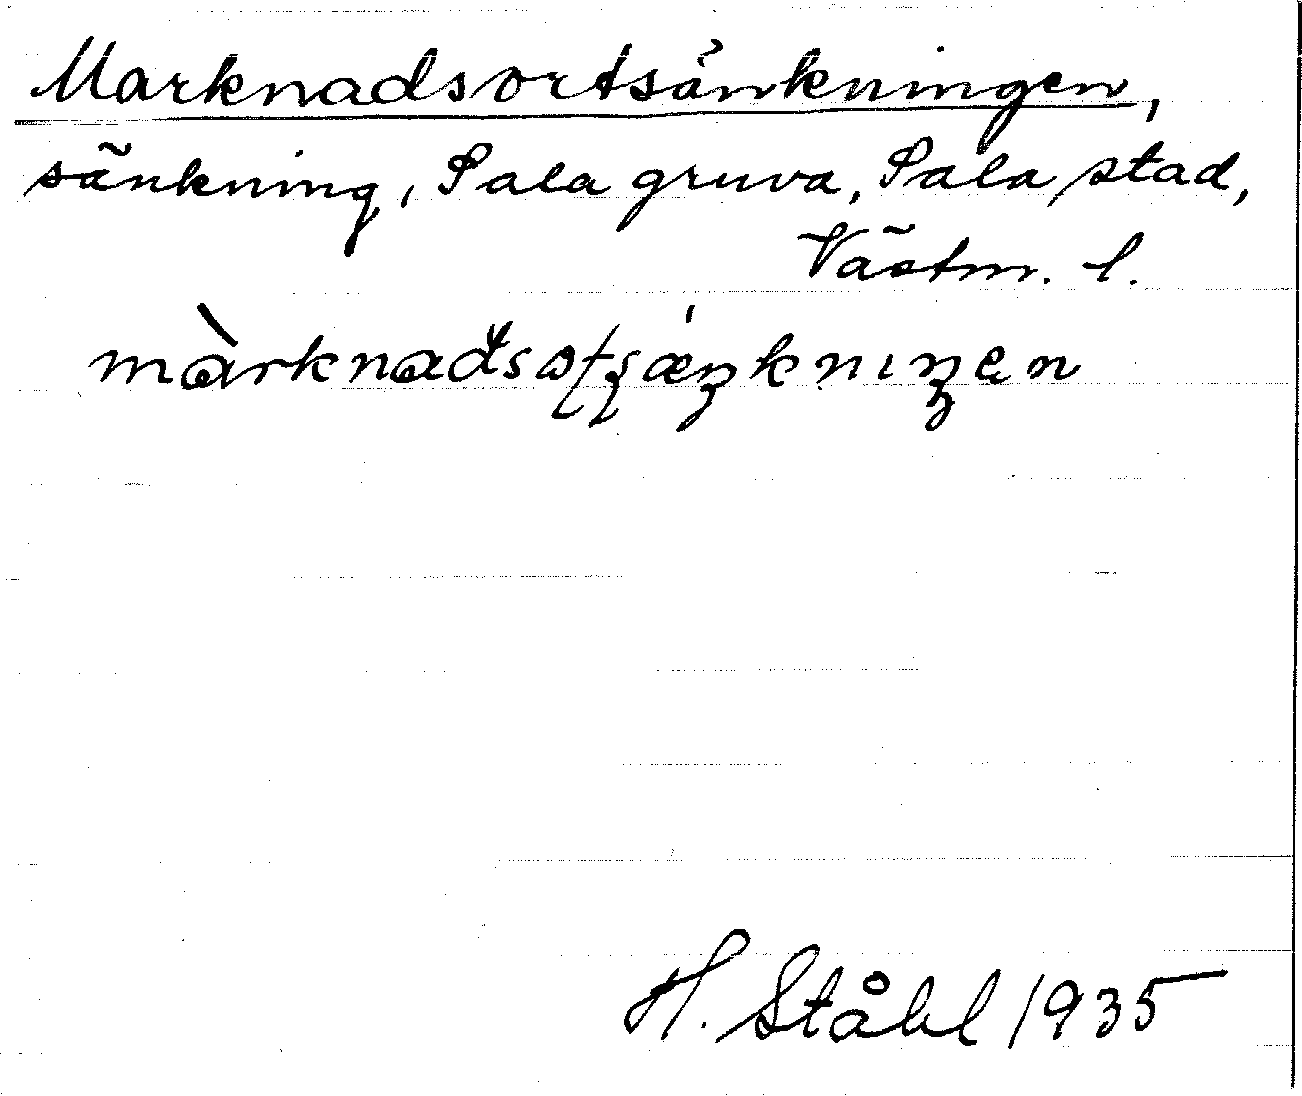 Marknadsortsänkningen,
sänkning, Sala gruva, Sala stad,
Västm. l.
H. Ståhl 1935